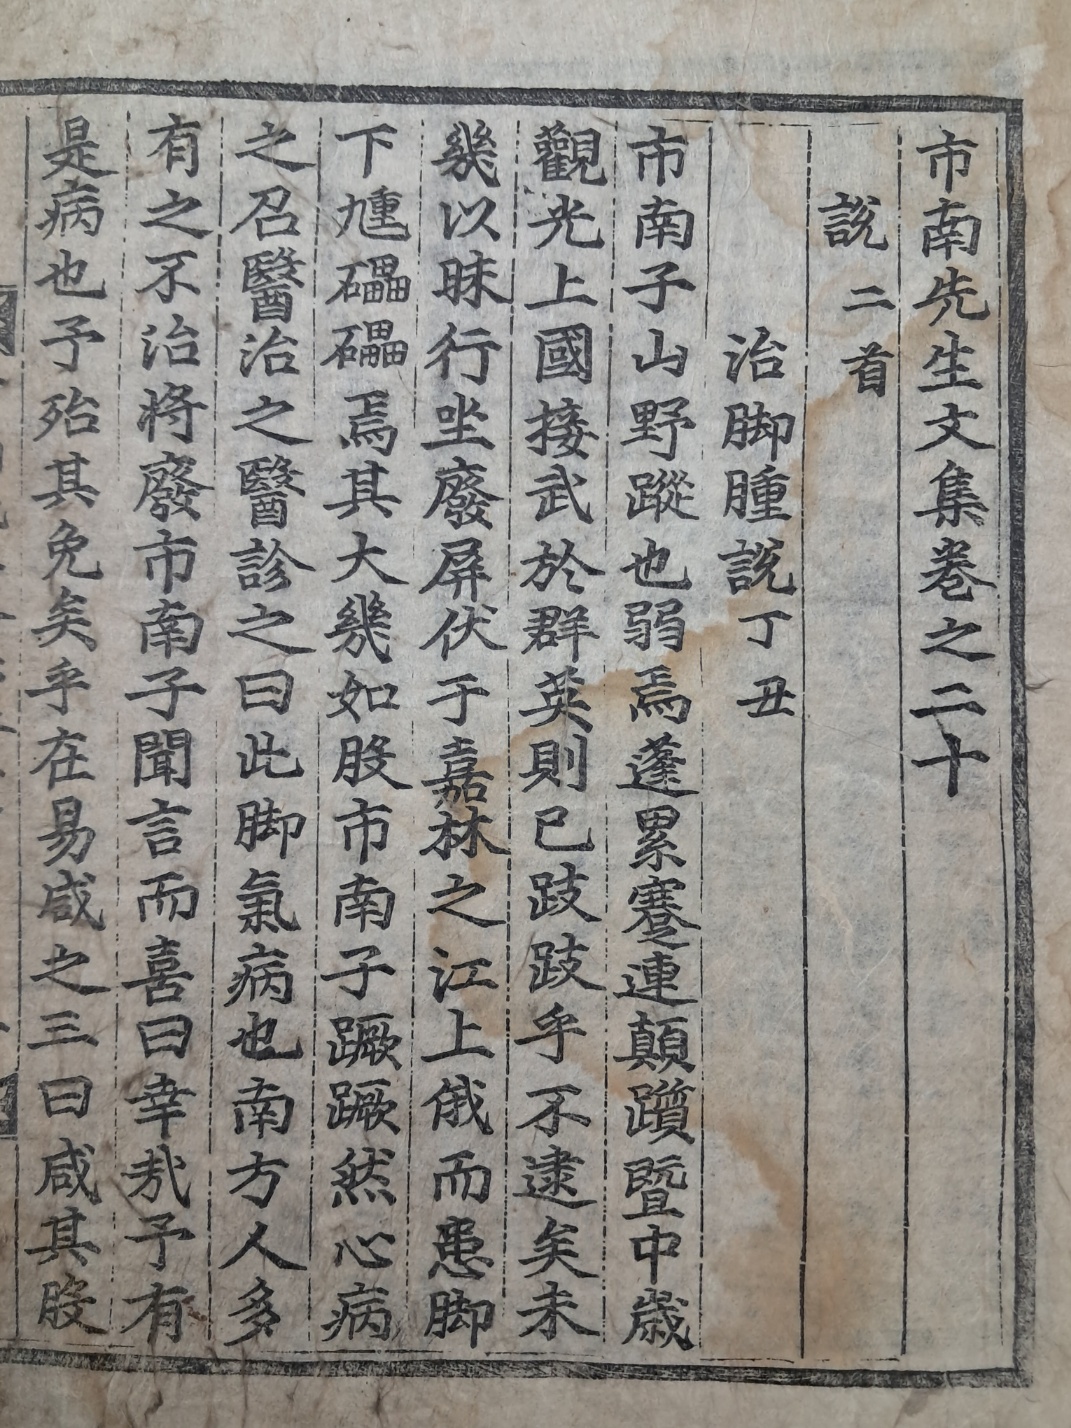 市南先生文集卷之二十
說 二首
治脚腫說 丁丑
市南子山野蹤也弱焉蓬累蹇連顛躓暨中歲
觀光上國接武於群英則已跂跂乎不逮矣未
幾以昧行坐廢屏伏于嘉林之江上俄而患脚
下尰礧礧焉其大幾如股市南子蹶蹶然心病
之召醫治之醫診之曰此脚氣病也南方人多
有之不治將廢市南子聞言而喜曰幸哉予有
是病也予殆其免矣乎在易咸之三曰咸其股